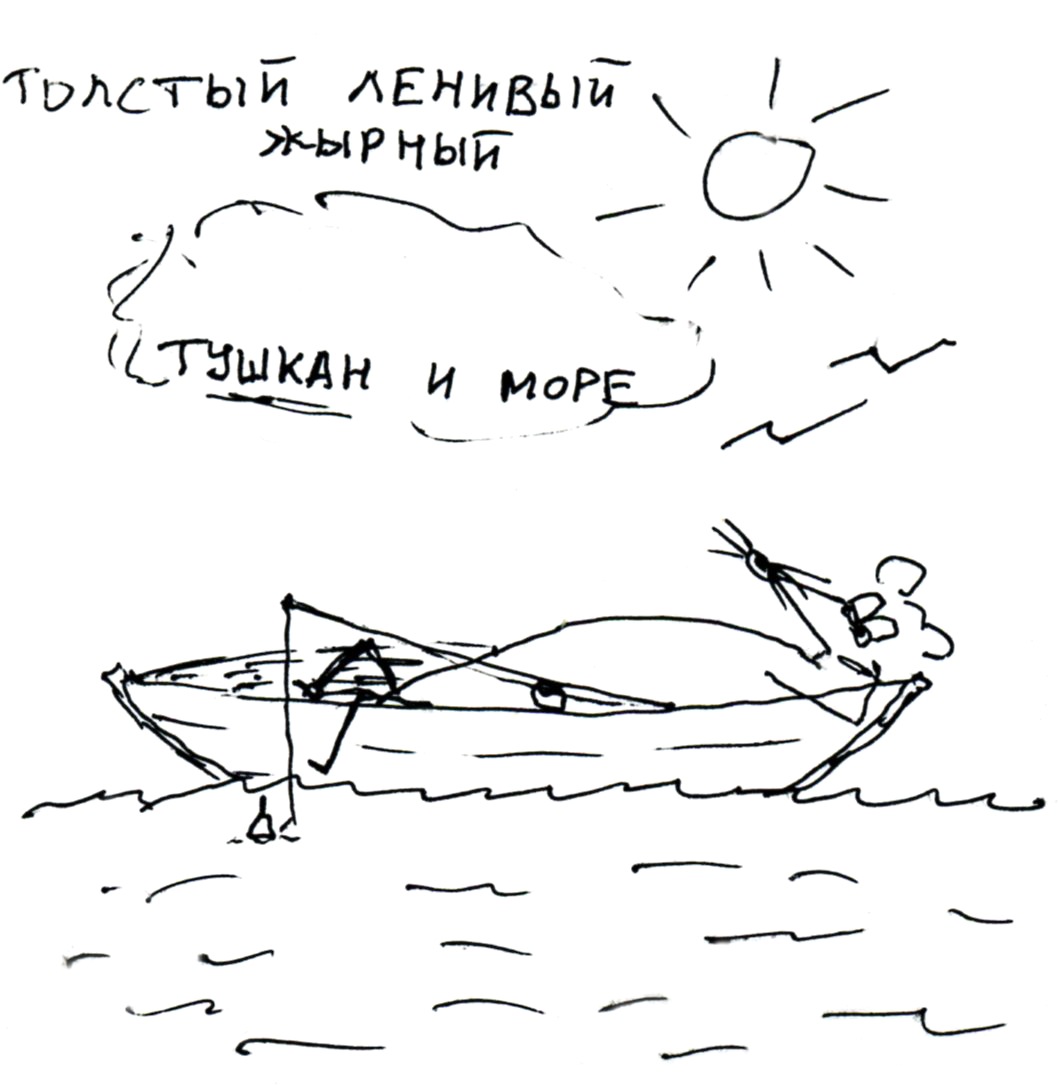 ТОЛСТЫЙ ЛЕНИВЫЙ
ЖЫРНЫЙ
ТУШКАН И МОРЕ